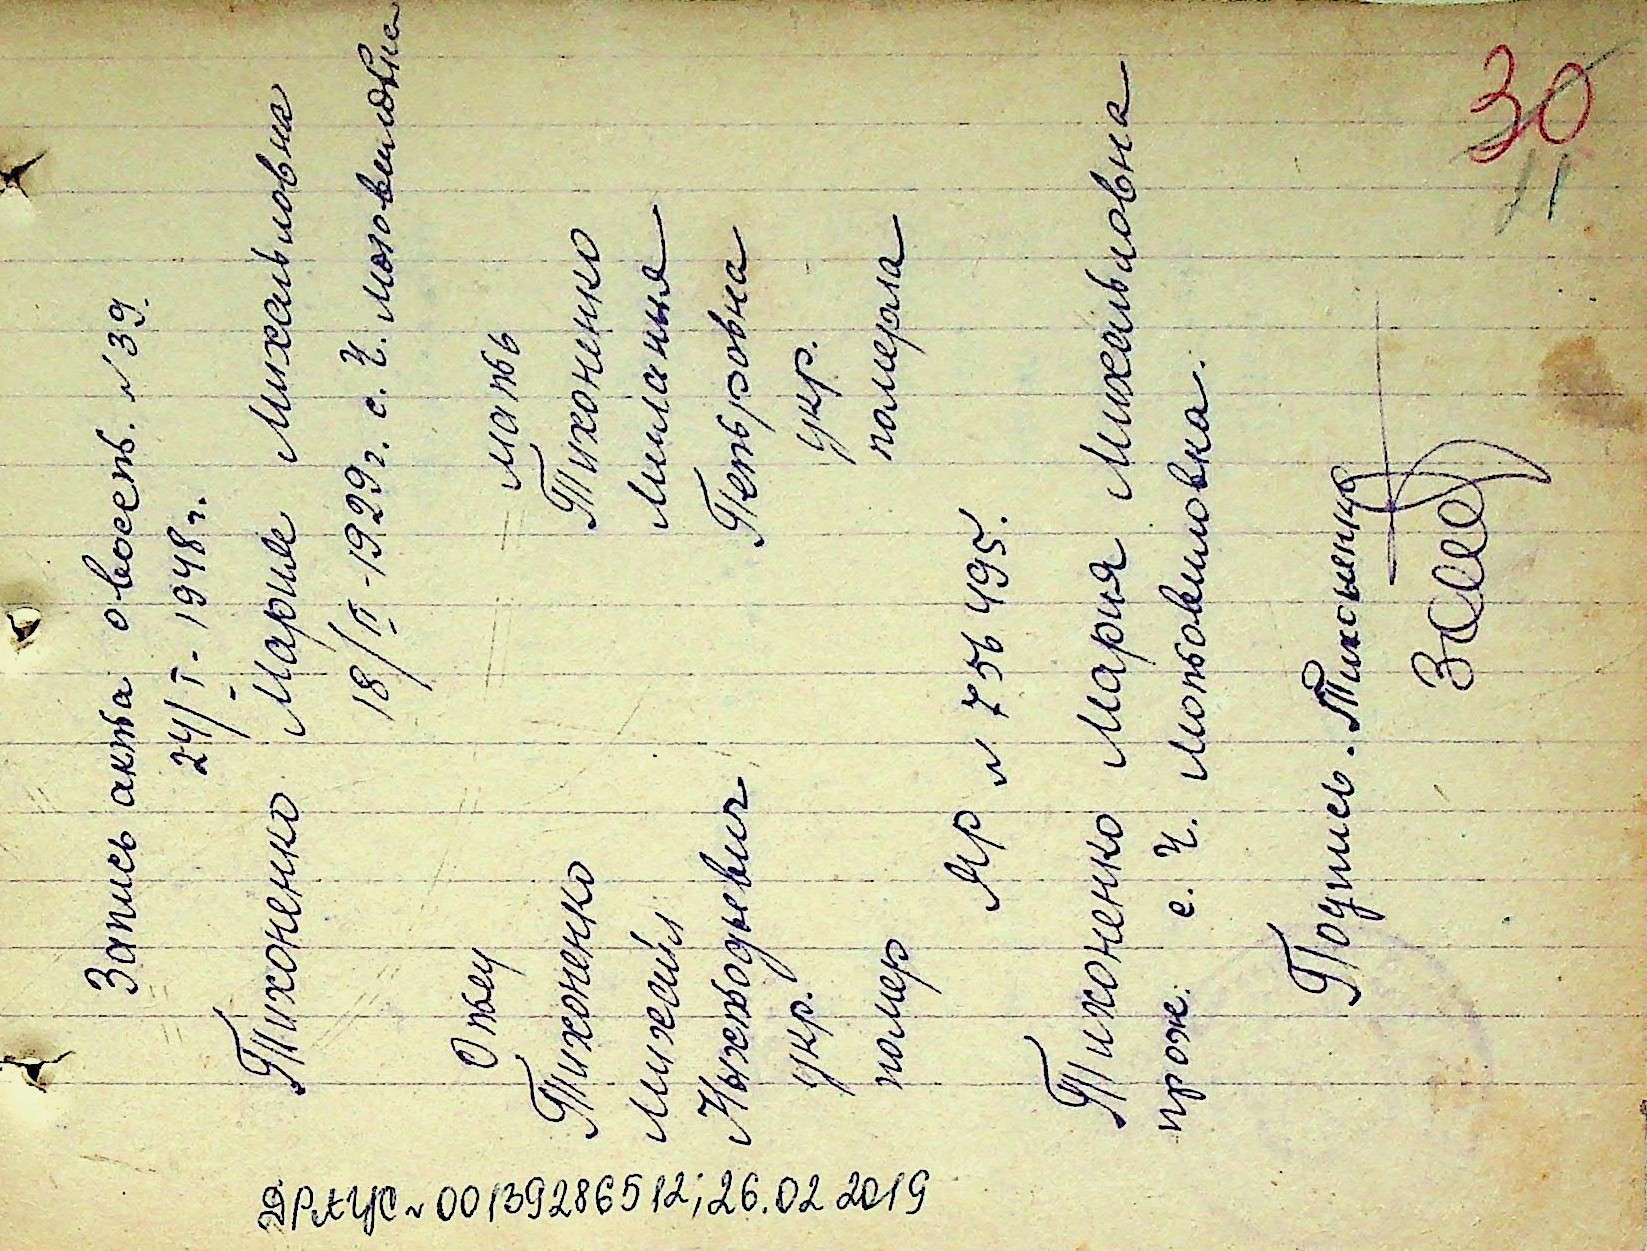 Запись акта о восст. №39.
24/I - 1948 г.
Тихоненко Мария Михайловна
18/II - 1929 г. с. Ч. Мотовиловка
Отец
мать
Тихоненко
Тихоненко
Михаил
Миланья
Петровна
укр.
укр.
помер
померла
№ 756495.
Тихоненко Мария Михайловна
прож: с. Ч. Мотовиловка.
Подпись. Тихоненко
30
11
ДРАЦС № 00139286512; 26.02 2019